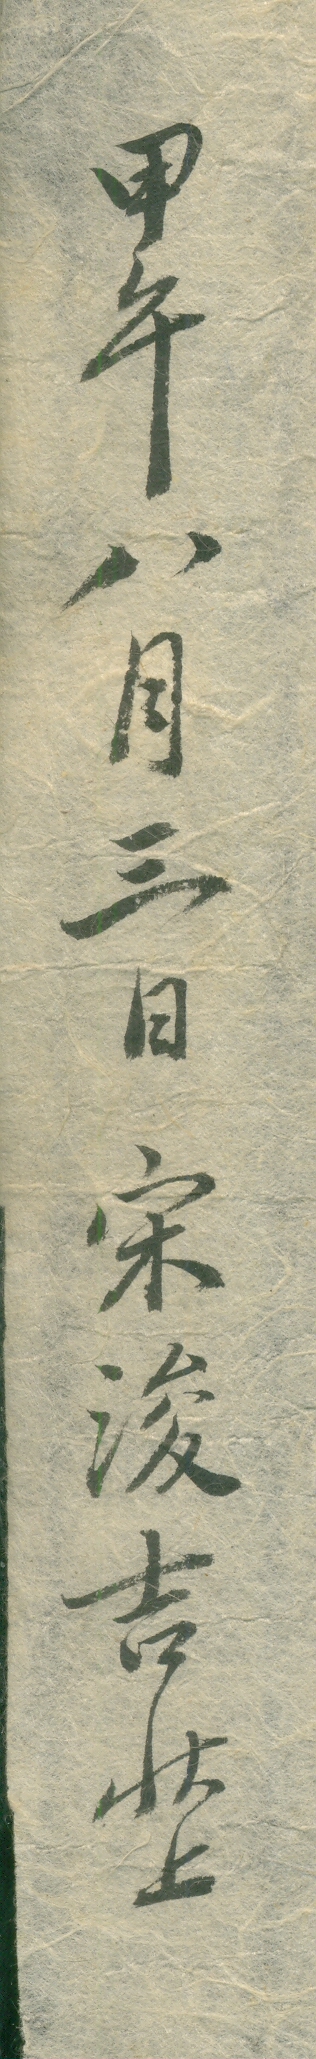 甲午八月三日宋浚吉狀上